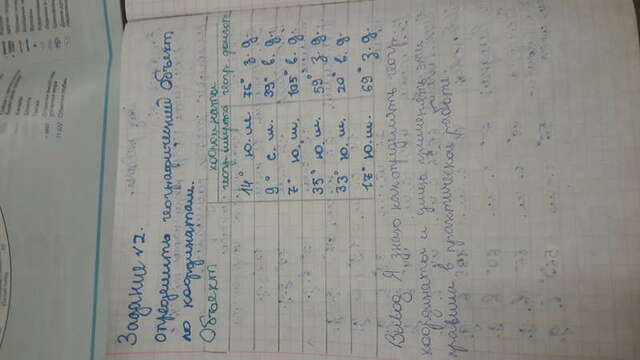 Задание №2.
Определить географический объект
по координатам.
Объект
координаты
геогр. широта геогр. долгота
14° ю.ш. 76° з.д.
9° с.ш. 39° в.д.
7° ю.ш. 105° в.д.
35° ю.ш. 59° з.д.
33° ю.ш. 20° в.д.
17° ю.ш. 69° з.д.
Вывод: Я знаю как определять геогр.
координаты и умею применять эти
правила в практической работе